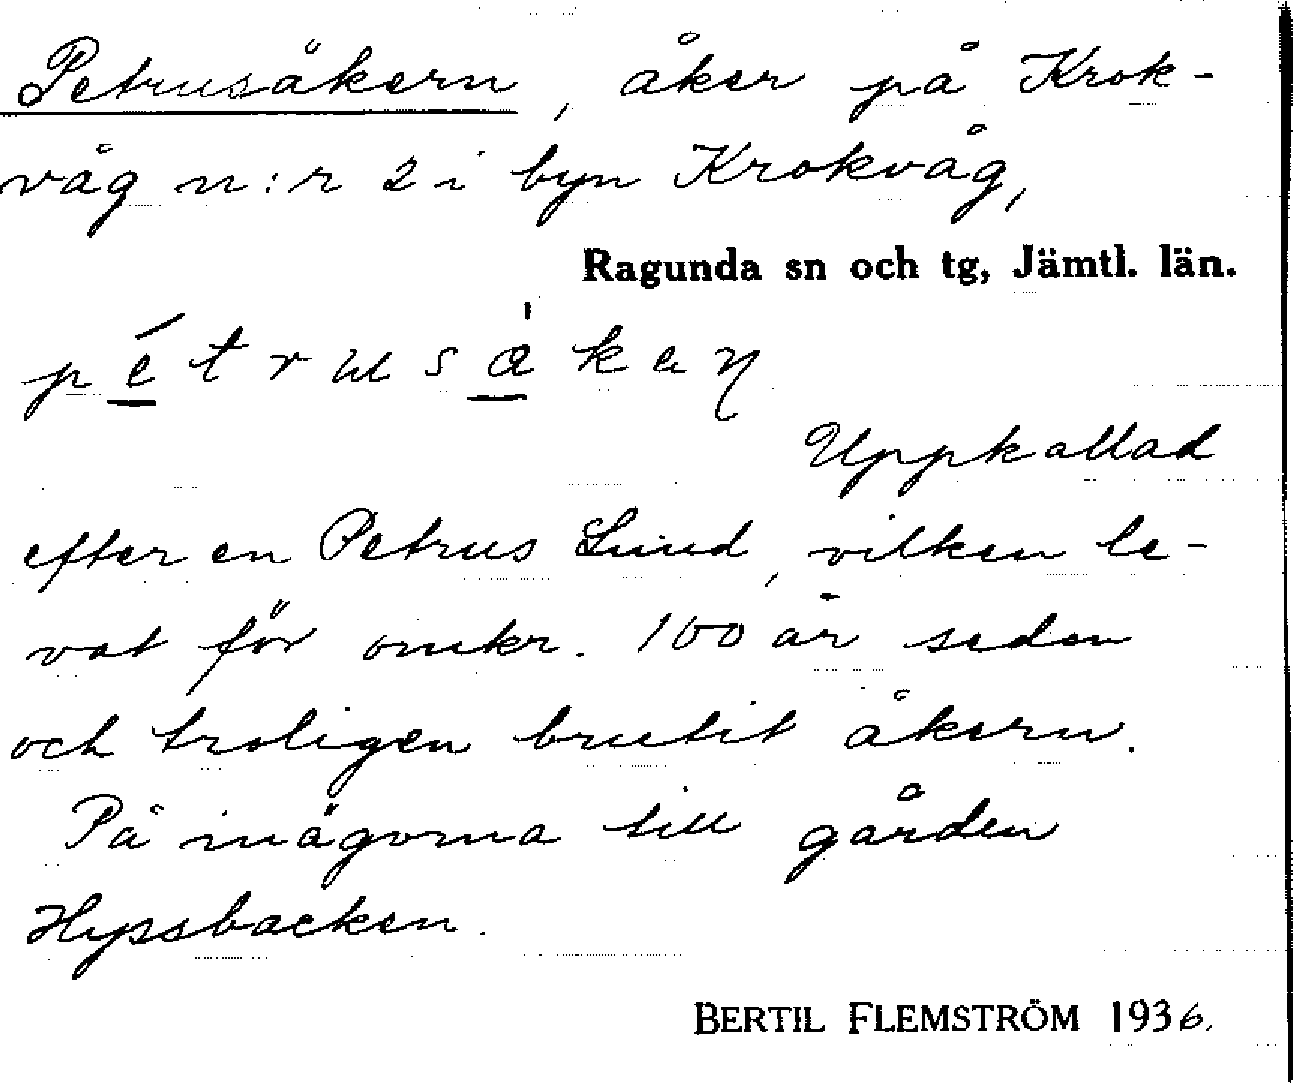 Petrusåkern, åker på Krok-
våg n:r 2 i byn Krokvåg,
Ragunda sn och tg, Jämtl. län.
pétrusákaŋ
Uppkallad
efter en Petrus Lund, vilken le-
vat för omkr. 100 år sedan
och troligen brutit åkern.
På inägorna till gården
Hyssbacken.
BERTIL FLEMSTRÖM 1936.